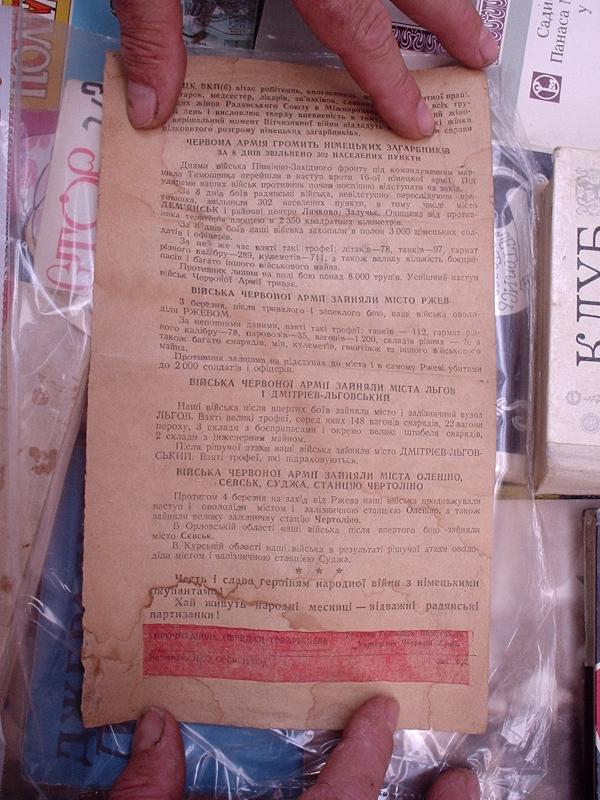 ЦК ВКП(б) вітає робітниць, колгоспниць,
медсестер, лікарів, зв'язківок,
жінок Радянського Союзу в Міжнародний
день і висловлює тверду впевненість в тому,
момент Вітчизняної війни віддадуть
цілковитого розгрому німецьких загарбників».
ЧЕРВОНА АРМІЯ ГРОМИТЬ НІМЕЦЬКИХ ЗАГАРБНИКІВ
ЗА 8 ДНІВ ЗВІЛЬНЕНО 302 НАСЕЛЕНИХ ПУНКТИ
Днями війська Північно-Західного фронту під командуванням мар-
шала Тимошенка перейшли в наступ проти 16-ої німецької армії. Під
ударами наших військ противник почав поспішно відступати на захід.
За 8 днів боїв радянські війська, невідступно переслідуючи про-
тивника, звільнили 302 населених пункти, в тому числі місто
ДЕМ'ЯНСЬК і районні центри Личково, Залучьє. Очищена від против-
ника територія площею в 2 350 квадратних кілометрів.
За 8 днів боїв наші війська захопили в полон 3 000 німецьких сол-
датів і офіцерів.
За це ж час взяті такі трофеї: літаків—78, танків—97, гармат
різного калібру—289, кулеметів—711, а також велику кількість боєпри-
пасів і багато іншого військового майна.
Противник лишив на полі бою понад 8 000 трупів. Успішний наступ
військ Червоної Армії триває.
ВІЙСЬКА ЧЕРВОНОЇ АРМІЇ ЗАЙНЯЛИ МІСТО РЖЕВ
3 березня, після тривалого і запеклого бою, наші війська оволо-
діли РЖЕВОМ.
За неповними даними, взяті такі трофеї: танків — 112, гармат різ-
ного калібру—78, паровозів—35, вагонів—1 200, складів різних — 5, а
також багато снарядів, мін, кулеметів, гвинтівок та іншого військового
майна.
Противник залишив на підступах до міста і в самому Ржеві убитими
до 2 000 солдатів і офіцерів.
ВІЙСЬКА ЧЕРВОНОЇ АРМІЇ ЗАЙНЯЛИ МІСТА ЛЬГОВ
І ДМІТРІЄВ-ЛЬГОВСЬКИЙ
Наші війська після впертих боїв зайняли місто і залізничний вузол
ЛЬГОВ. Взяті великі трофеї, серед яких 148 вагонів снарядів, 22 вагони
пороху, 3 склади з боєприпасами і окремо великі штабеля снарядів,
2 склади з інженерним майном.
Після рішучої атаки наші війська зайняли місто ДМІТРІЄВ-ЛЬГОВ-
СЬКИЙ. Взяті трофеї, які підраховуються.
ВІЙСЬКА ЧЕРВОНОЇ АРМІЇ ЗАЙНЯЛИ МІСТА ОЛЕНІНО,
СЄВСЬК, СУДЖА, СТАНЦІЮ ЧЕРТОЛІНО
Протягом 4 березня на захід від Ржева наші війська продовжували
наступ і оволоділи містом і залізничною станцією Оленіно, а також
зайняли велику залізничну станцію Чертоліно.
В Орловській області наші війська після впертого бою зайняли
місто Сєвськ.
В Курській області наші війська в результаті рішучої атаки оволо-
діли містом і залізничною станцією Суджа.
* * *
Честь і слава героїням народної війни з німецькими
окупантами!
Хай живуть народні месниці — відважні радянські
партизанки!
ПРОЧИТАВШИ, ПЕРЕДАЙ ТОВАРИШЕВІ
Червоної Армії
КЛУБ
Сади
Панаса М